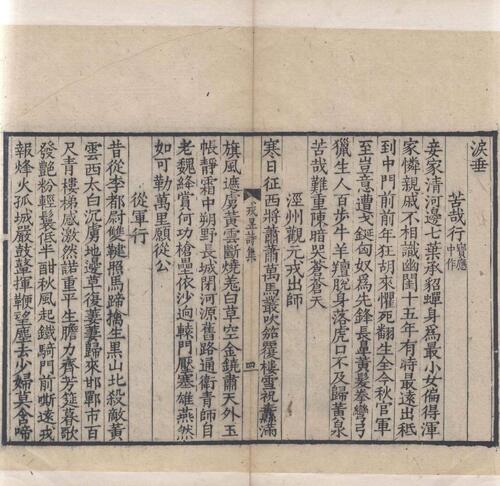 淚垂
苦哉行寶應中作
妾家清河邊七葉承貂蟬身為最小女偏得渾
家憐親戚不相識幽閨十五年有時最遠出秪
到中門前前年狂胡來懼死翻生全今秋官軍
至豈意遭戈鋋匈奴為先鋒長鼻黃髮拳彎弓
獵生人百步牛羊羶脫身落虎口不及歸黃泉
苦哉難重陳暗哭蒼蒼天
涇州觀元戎出師
寒日征西將蕭蕭萬馬叢吹笳覆樓雪祝纛滿
戎昱詩集 四
旗風遮虜黃雲斷燒羌白草空金鐃肅天外玉
帳靜霜中朔野長城閉河源舊路通衛青師自
老魏絳賞何功槍壘依沙迥轅門壓塞雄燕然
如可勒萬里願從公
從軍行
昔從李都尉雙鞬照馬蹄擒生黑山北殺敵黃
雲西太白沉虜地邊草復萋萋歸來邯鄲市百
尺青樓梯感激然諾重平生膽力齊芳筵暮歌
發艷粉輕鬟低半酣秋風起鐵騎門前嘶遠戍
報烽火孤城嚴鼓鼙揮鞭望塵去少婦莫含啼